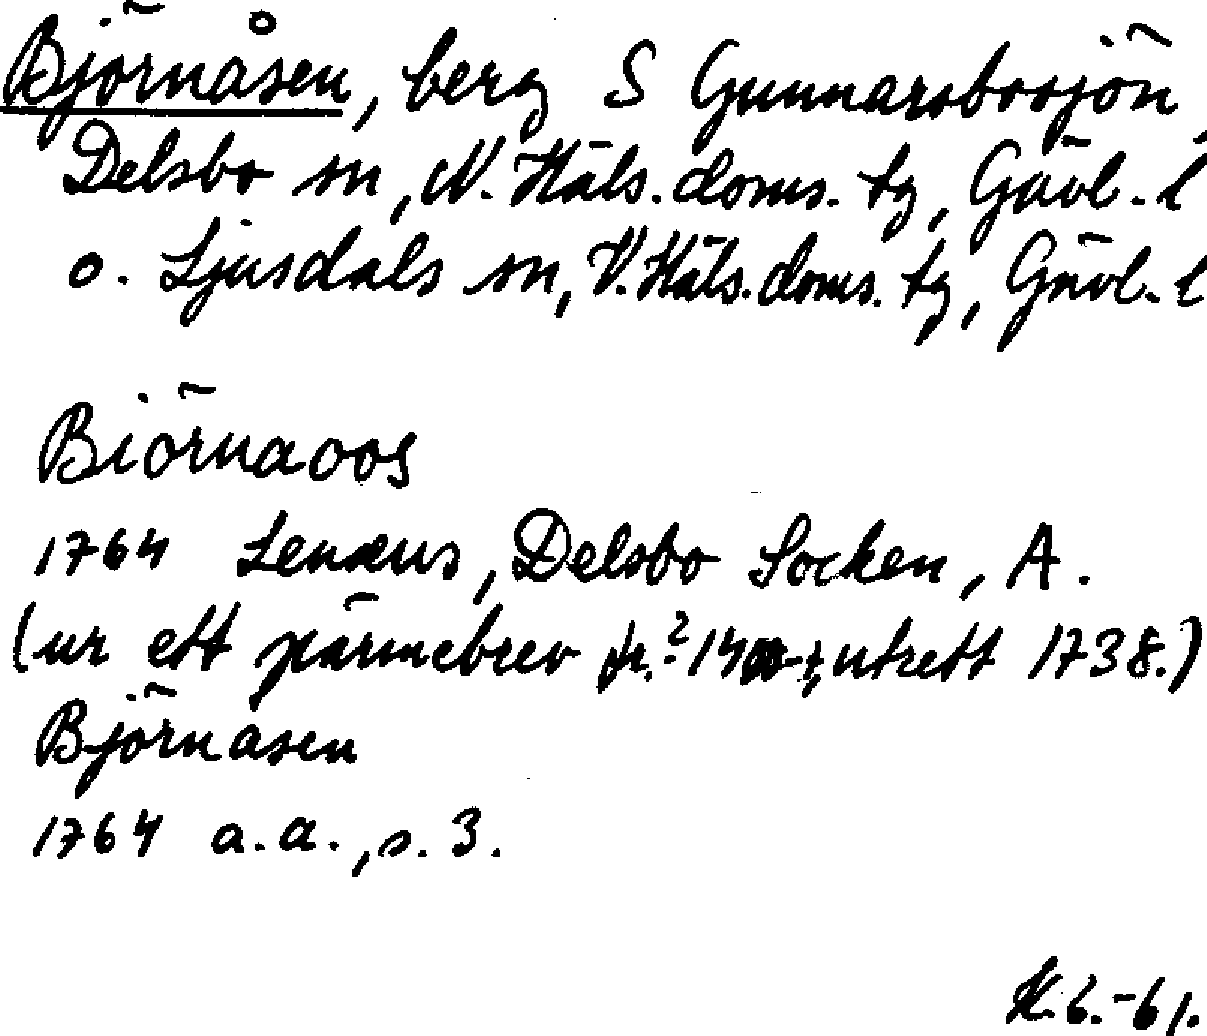 Björnåsen, berg S Gunnarsbosjön,
Delsbo sn, N. Häls. doms. tg, Gävl. l
o. Ljusdals sn, V. Häls. doms. tg, Gävl. l
Biörnaoos
1764 Lenæus, Delsbo Socken, A.
(ur ett pärmebrev fr.? utrett 1738.)
Björnåsen
1764 a.a., s. 3.
6.-61.